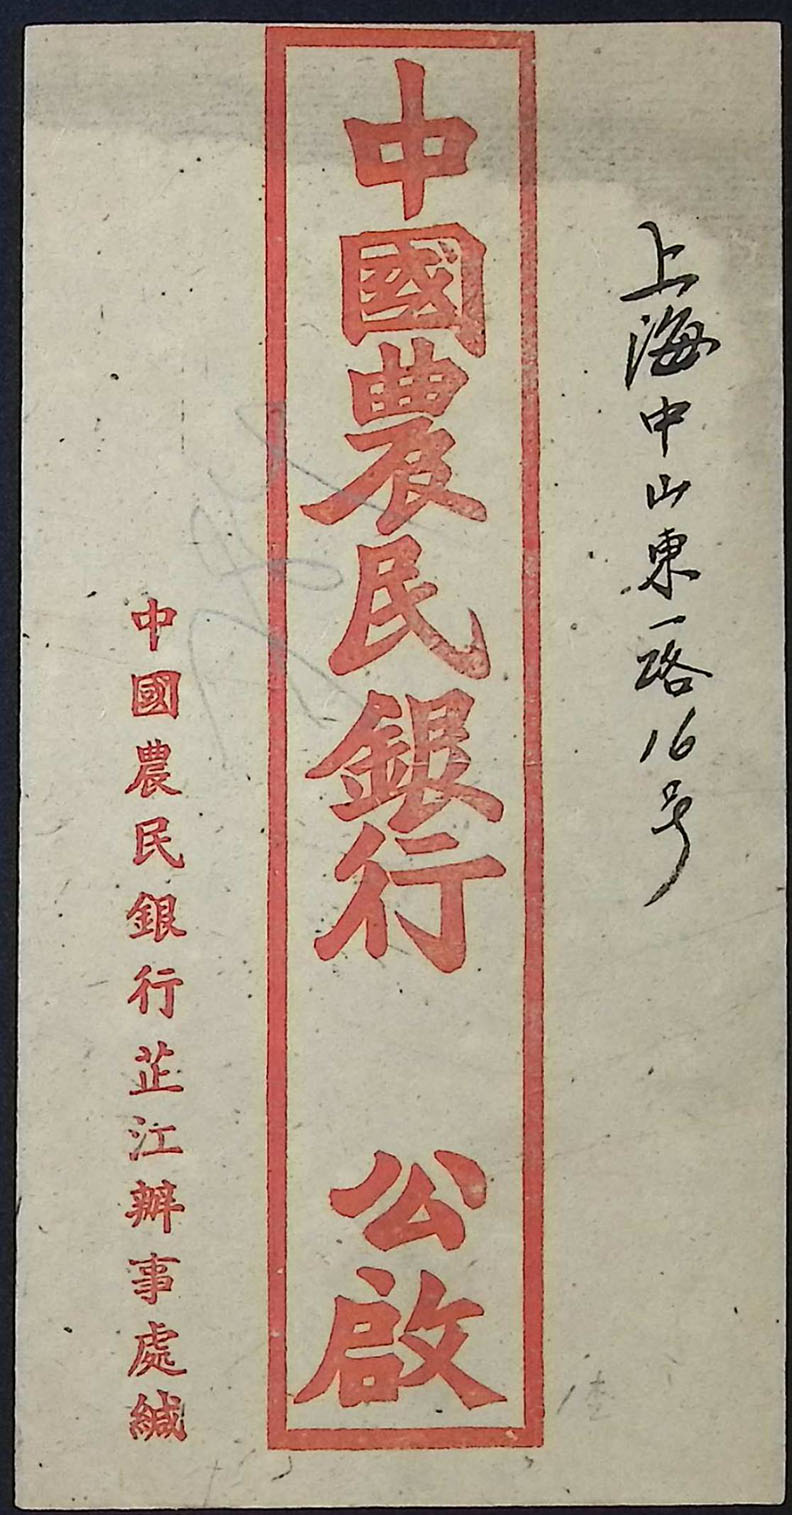 上海中山東一路16号
中國農民銀行 公啟
中國農民銀行芷江辦事處緘